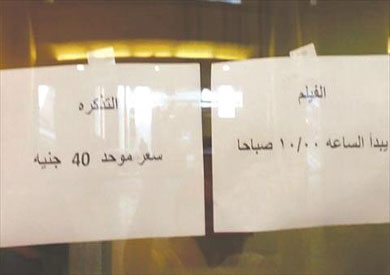 الفيلم
يبدأ الساعه ١٠/٠٠ صباحا
التذكره
سعر موحد 40 جنيه